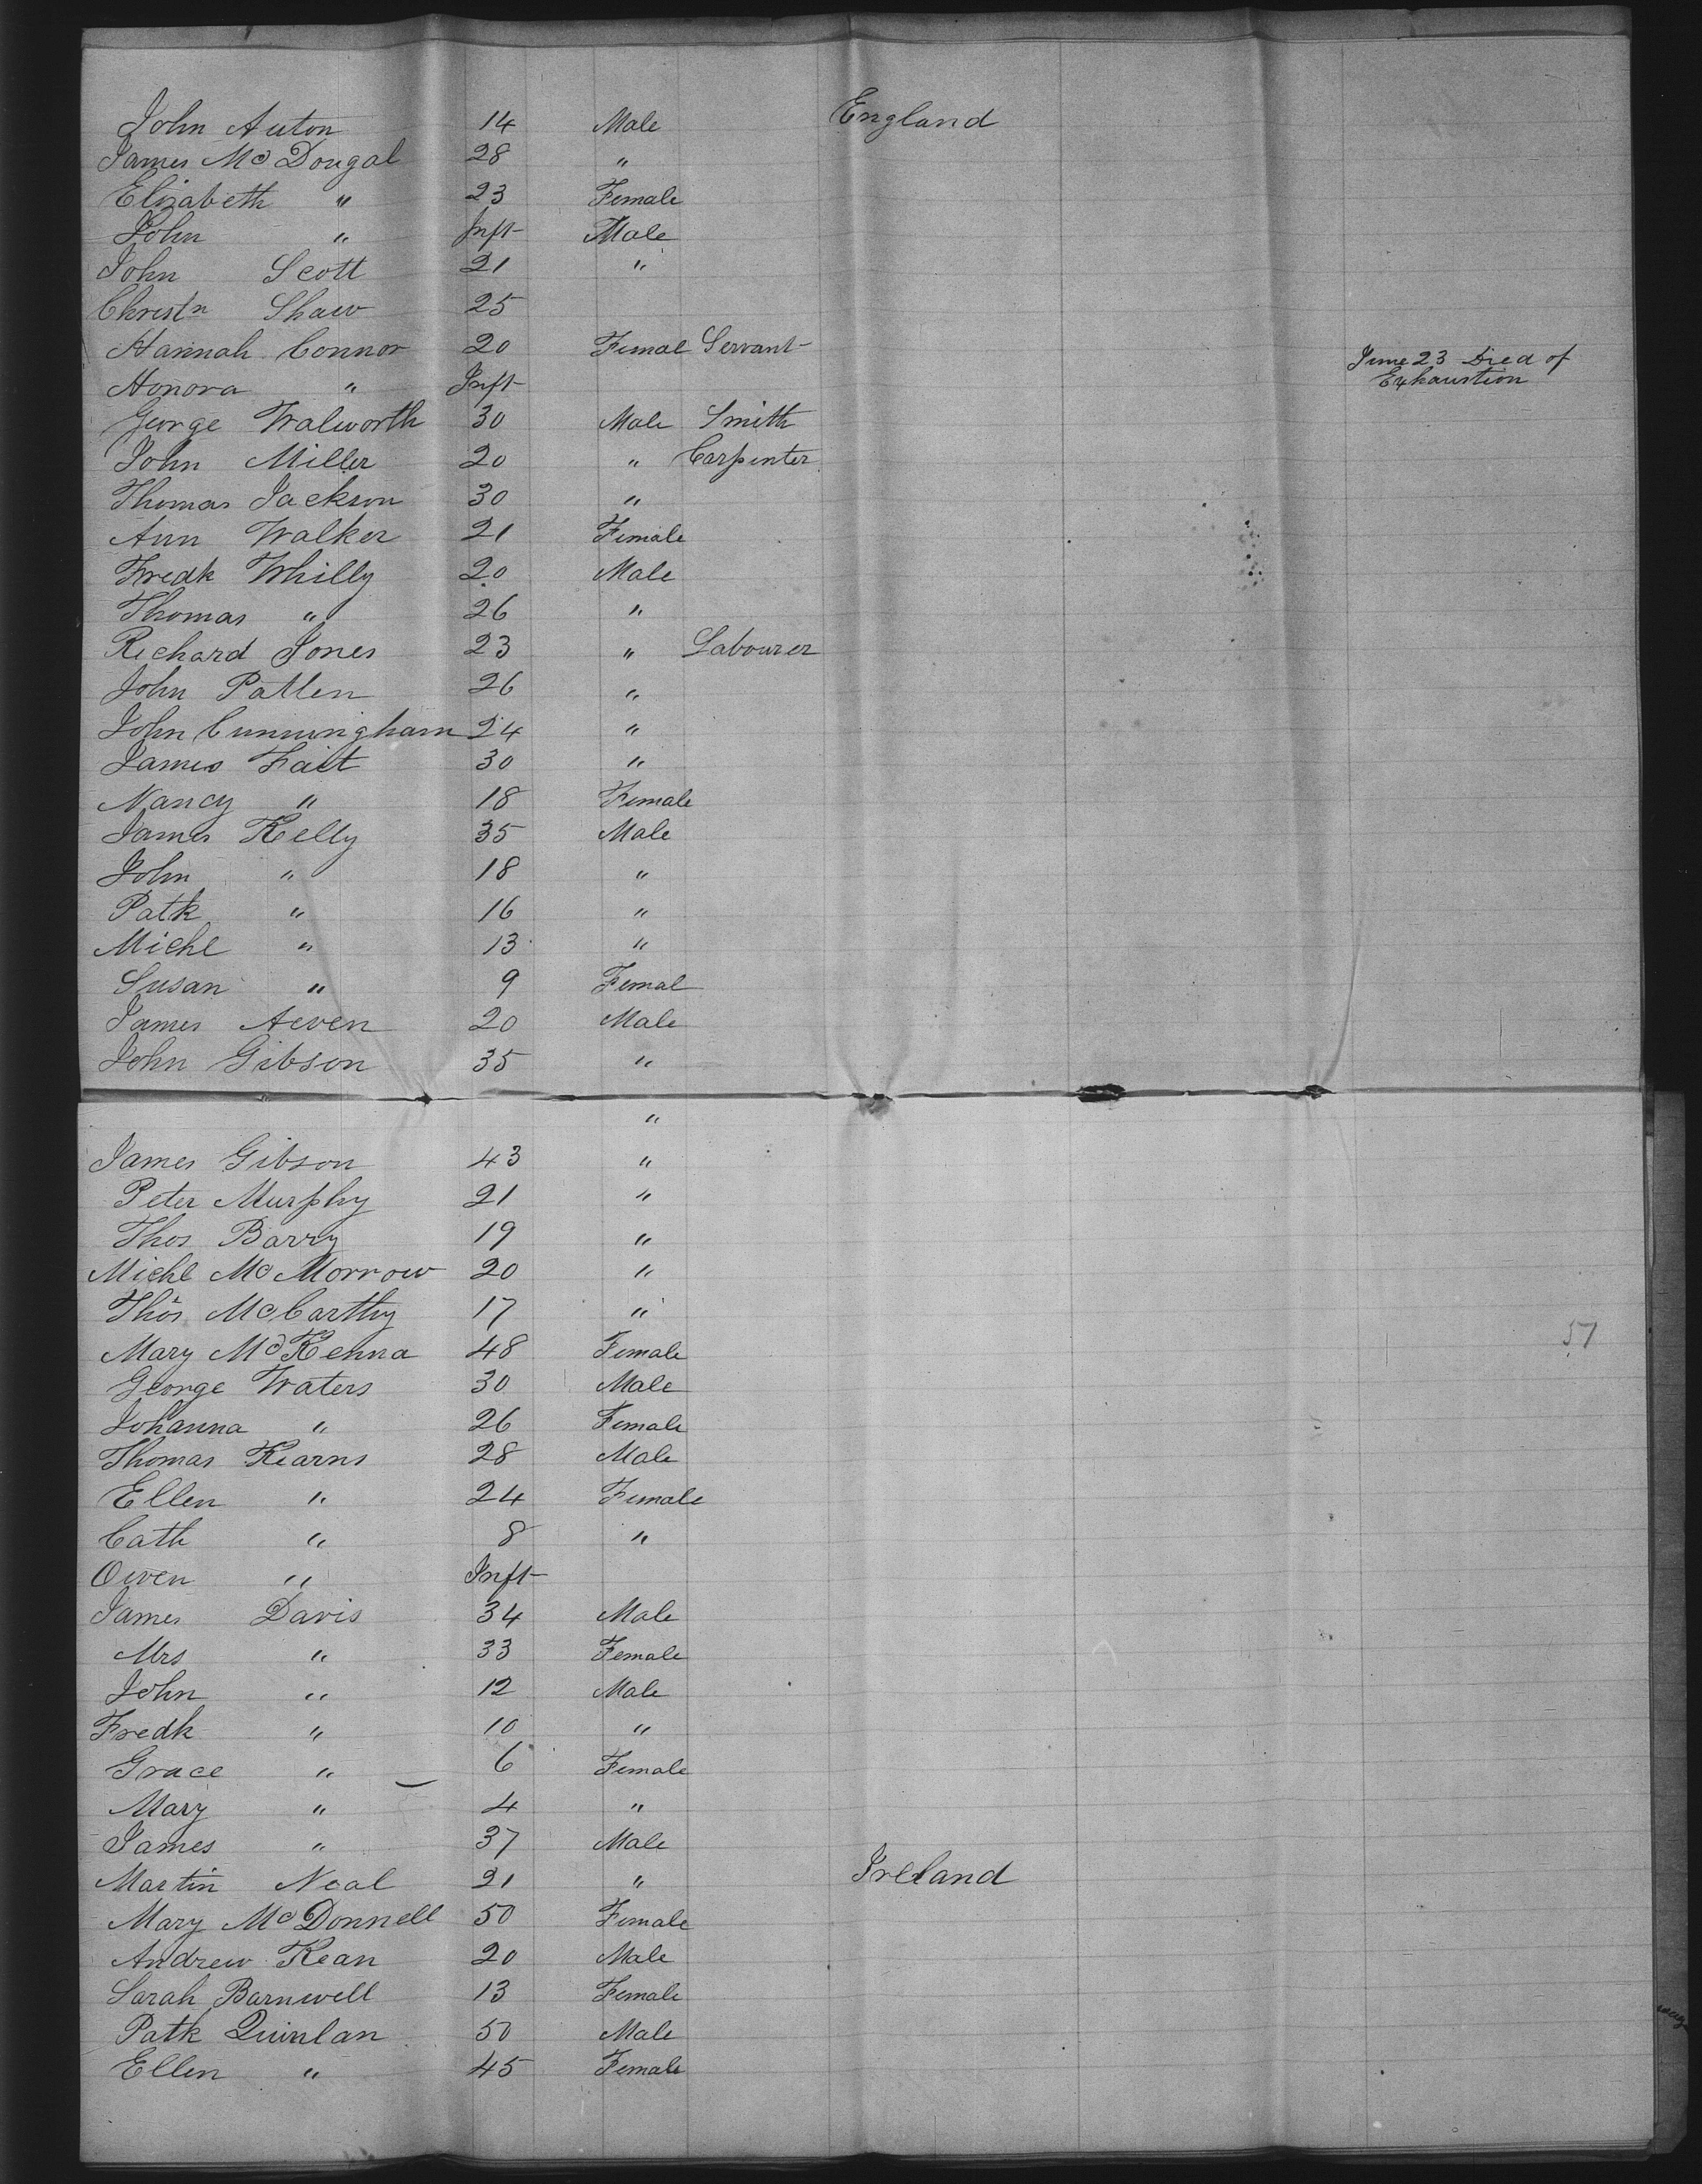 John Auton 14 Male England
James McDougal 28 "
Elizabeth " 23 Female
John " Inft Male
John Scott 21 "
Christn Shaw 25
Hannah Connor 20 Femal Servant June 23 Died of
Honora " Inft Exhaustion
George Walworth 30 Male Smith
John Miller 20 " Carpenter
Thomas Jackson 30 "
Ann Walker 21 Female
Fredk Whilly 20 Male
Thomas " 26 "
Richard Jones 23 " Labourer
John Patten 26 "
John Cunningham 24 "
James Tait 30 "
Nancy " 18 Female
James Kelly 35 Male
John " 18 "
Patk " 16 "
Michl " 13 "
Susan " 9 Femal
James Aeven 20 Male
John Gibson 35 "
"
James Gibson 43 "
Peter Murphy 21 "
Thos Barry 19 "
Michl McMorrow 20 "
Thos McCarthy 17 "
Mary McKenna 48 Female 57
George Waters 30 Male
Johanna " 26 Female
Thomas Kearns 28 Male
Ellen " 24 Female
Cath " 8 "
Owen " Inft
James Davis 34 Male
Mrs " 33 Female
John " 12 Male
Fredk " 10 "
Grace " 6 Female
Mary " 4 "
James " 37 Male
Martin Neal 21 " Ireland
Mary McDonnell 50 Female
Andrew Kean 20 Male
Sarah Barnwell 13 Female
Patk Quinlan 50 Male
Ellen " 45 Female